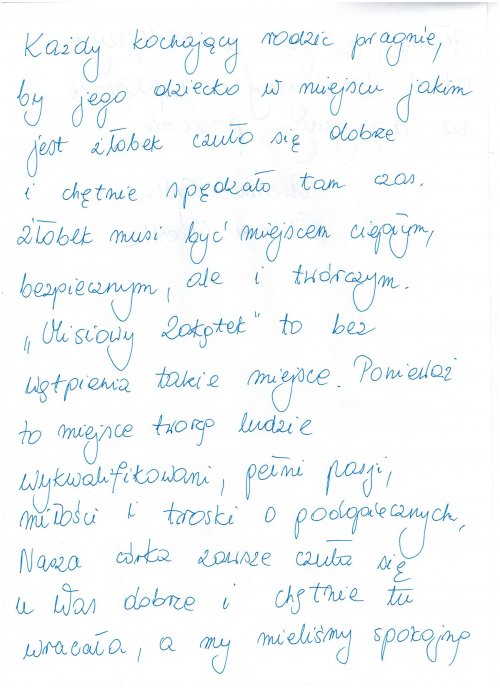 Każdy kochający rodzic pragnie,
by jego dziecko w miejscu jakim
jest żłobek czuło się dobrze
i chętnie spędzało tam czas.
Żłobek musi być miejscem ciepłym,
bezpiecznym, ale i twórczym.
„Misiowy Zakątek" to bez
wątpienia takie miejsce. Ponieważ
to miejsce tworzą ludzie
wykwalifikowani, pełni pasji,
miłości i troski o podopiecznych.
Nasza córka zawsze czuła się
u Was dobrze i chętnie tu
wracała, a my mieliśmy spokojną